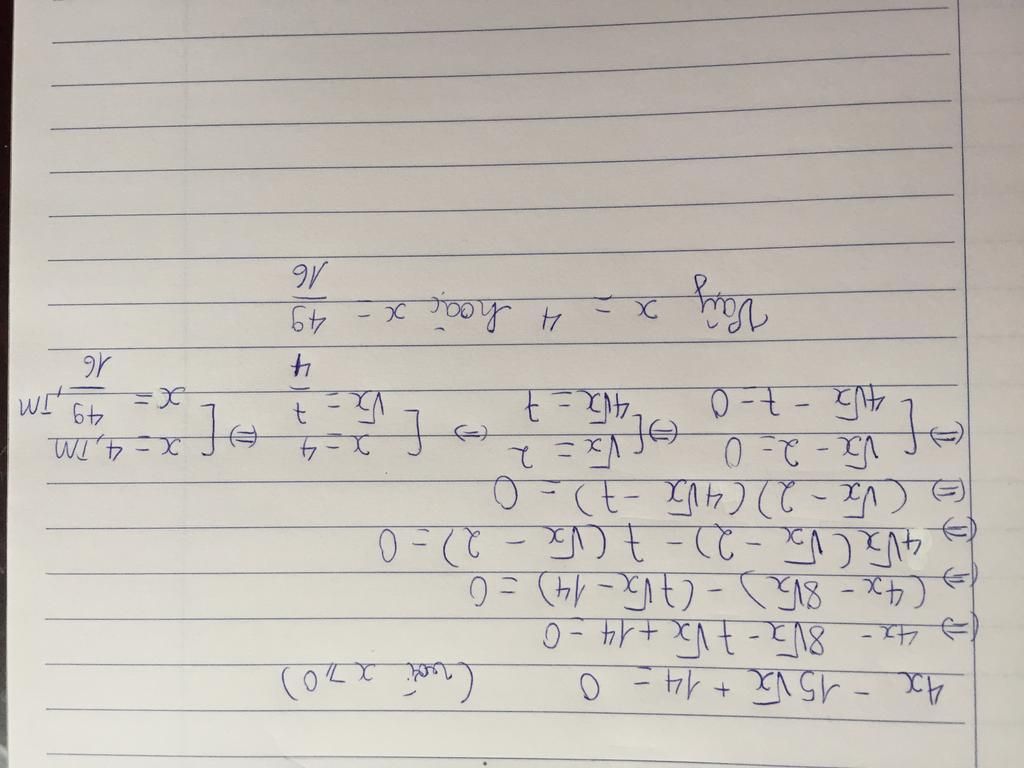 4x - 15√x + 14 = 0 (với x ≥ 0)
⇔ 4x - 8√x - 7√x + 14 = 0
⇔ (4x - 8√x) - (7√x - 14) = 0
⇔ 4√x(√x - 2) - 7(√x - 2) = 0
⇔ (√x - 2)(4√x - 7) = 0
⇔ [√x - 2 = 0 ⇔ [√x = 2 ⇔ [x = 4 ⇔ [x = 4, TM
4√x - 7 = 0 4√x = 7 √x = 7/4 x = 49/16, TM
Vậy x = 4 hoặc x = 49/16